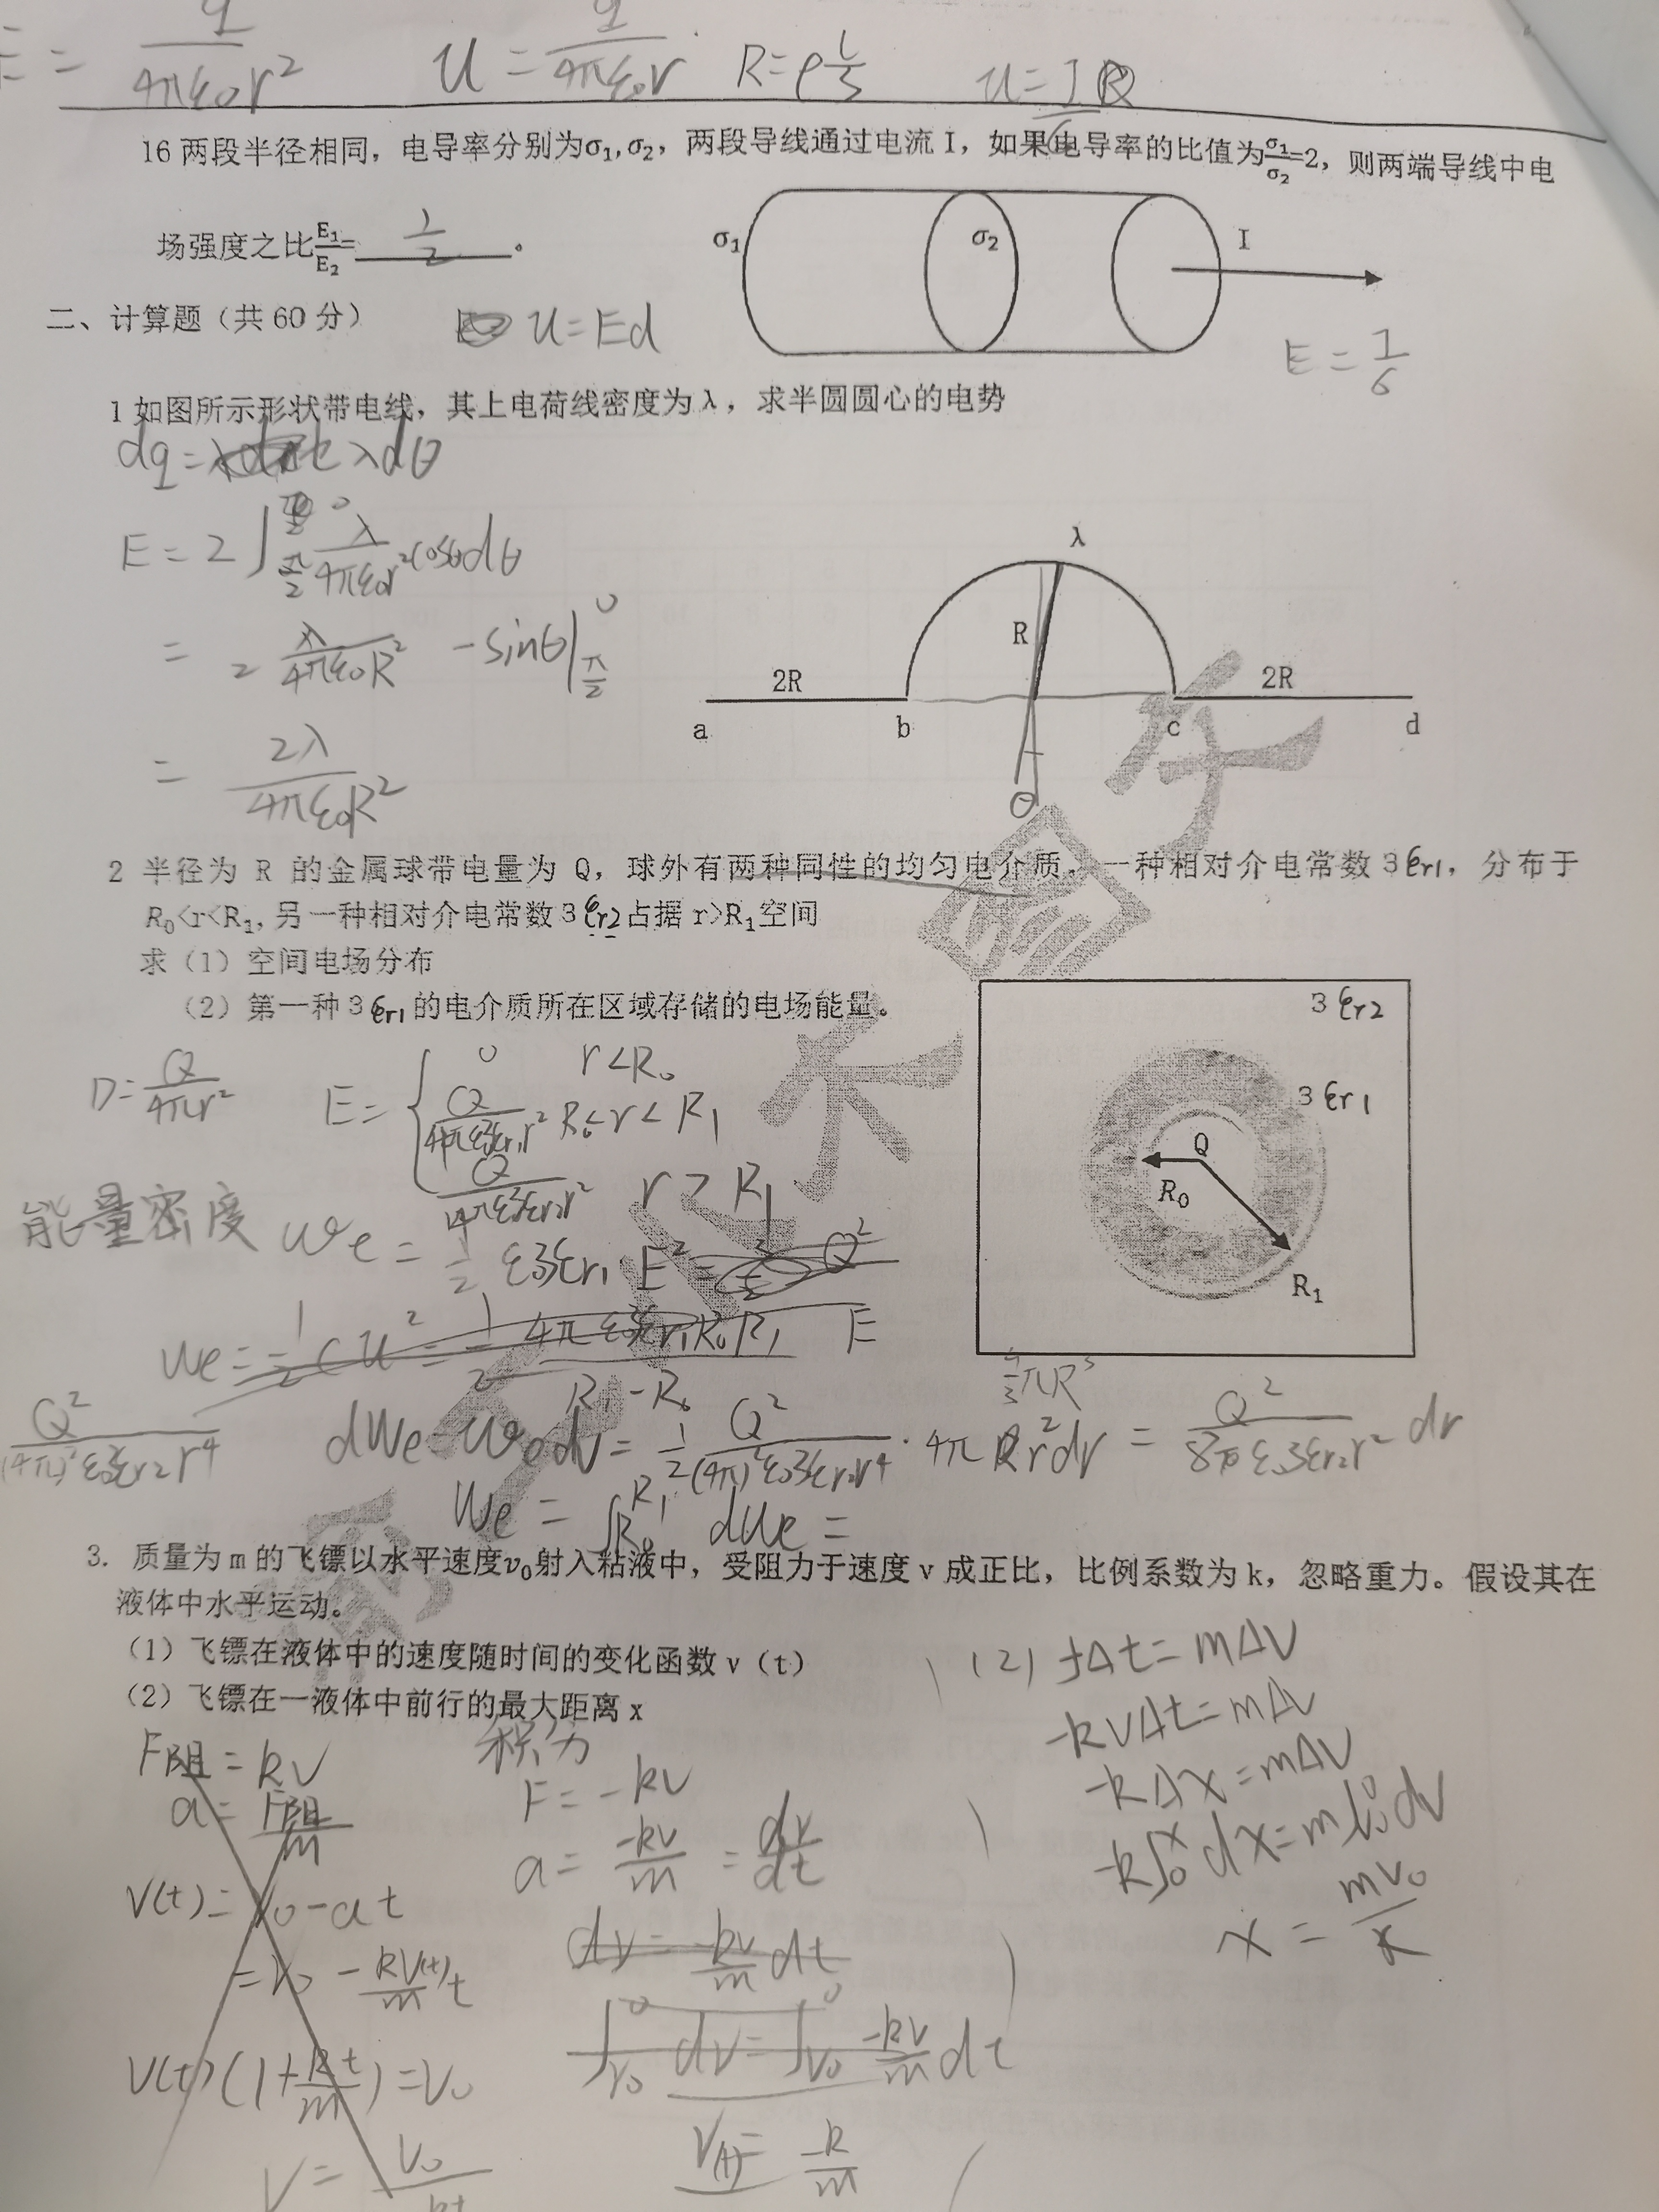 E = q/4πε₀r²   U = q/4πε₀r   R=ρ L/S   U=IR
16 两段半径相同，电导率分别为σ₁,σ₂，两段导线通过电流 I，如果电导率的比值为σ₁/σ₂=2，则两端导线中电
场强度之比E₁/E₂= 1/2 。
σ₁ σ₂ I
二、计算题（共 60 分）
U=Ed
E = I/σ
1 如图所示形状带电线，其上电荷线密度为 λ，求半圆圆心的电势
dq= λdθ
E = 2∫ λ/4πε₀r² cosθdθ
= 2 λ/4πε₀R² -sinθ|
= 2λ/4πε₀R²
λ
R
2R 2R
a b c d
2 半径为 R 的金属球带电量为 Q，球外有两种同性的均匀电介质，一种相对介电常数 3εr1，分布于
R₀<r<R₁, 另一种相对介电常数 3εr2占据 r>R₁空间
求（1）空间电场分布
（2）第一种 3εr1 的电介质所在区域存储的电场能量。
3εr2
3εr1
Q
R₀
R₁
D=Q/4πr²   E= 0 r<R₀
Q/4πε₀3εr1r² R₀<r<R₁
Q/4πε₀3εr2r² r>R₁
能量密度 we = 1/2 ε₀3εr1 E²
4/3πR³
Q²/(4π)²ε₀3εr2r⁴   dWe=wedv= 1/2 Q²/(4π)²ε₀3εr2r⁴ · 4πr²dr = Q²/8πε₀3εr2r² dr
We = ∫R₀ R₁ dWe =
3. 质量为 m 的飞镖以水平速度v₀射入粘液中，受阻力于速度 v 成正比，比例系数为 k，忽略重力。假设其在
液体中水平运动。
（1）飞镖在液体中的速度随时间的变化函数 v（t）
（2）飞镖在一液体中前行的最大距离 x
F阻 = kv
a = F阻/m
V(t)= V₀-at
=V₀ - kV(t)/m t
V(t)(1+kt/m)=V₀
积分
F = -kv
a = -kv/m = dv/dt
dv = -kv/m dt
∫ dv = ∫ -kv/m dt
V(t)= -k/m
(2) fΔt=mΔV
-kVΔt=mΔV
-kΔx=mΔV
-k∫dx=m∫dv
x = mv₀/k